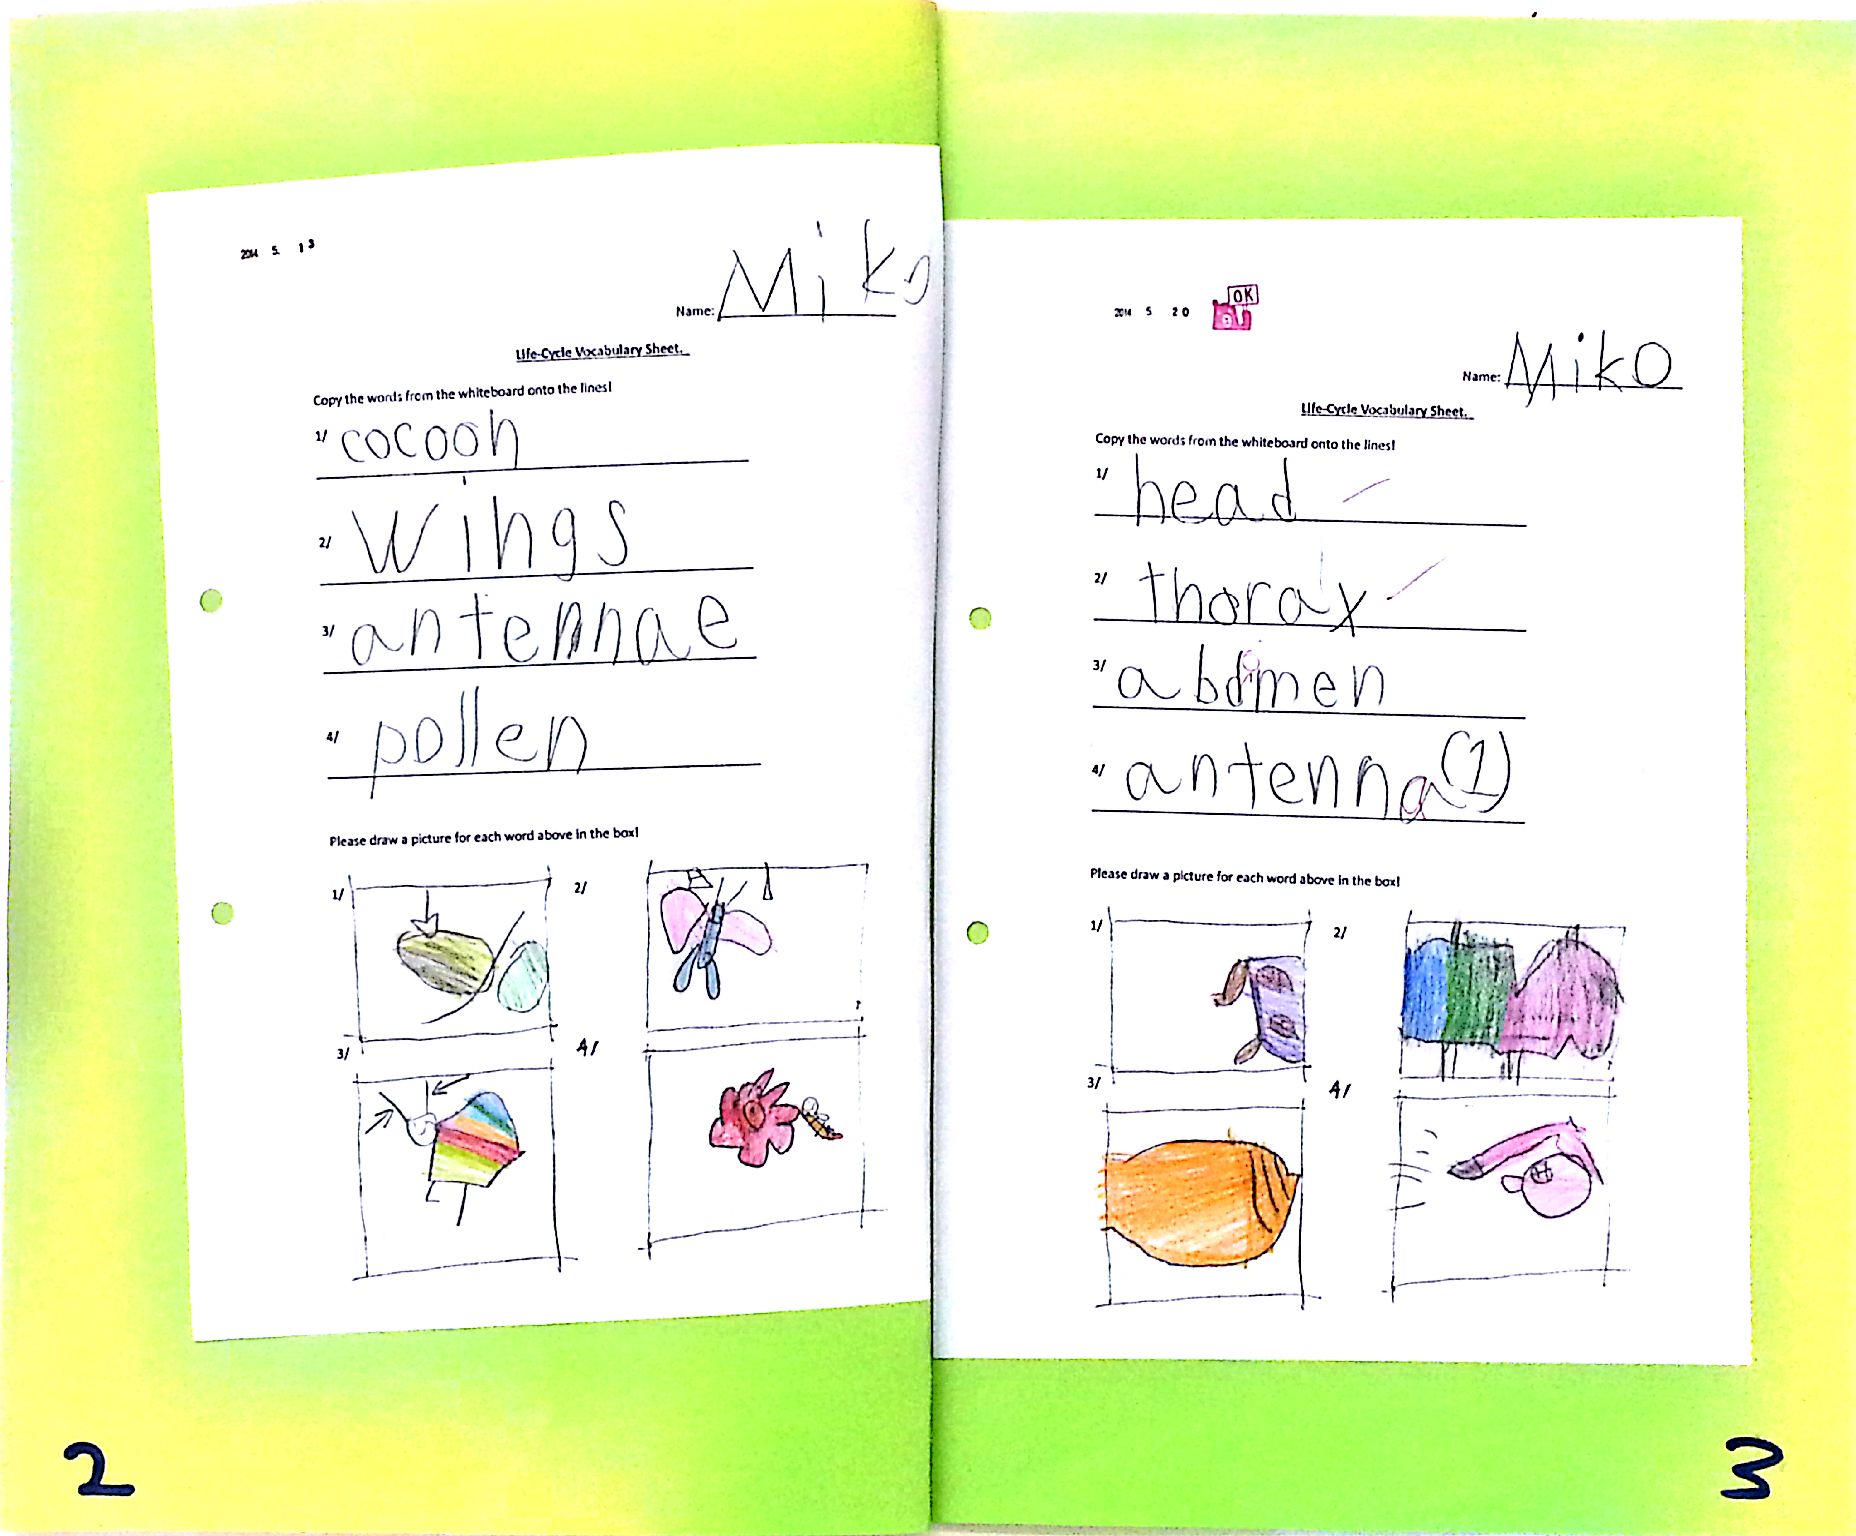 2014 5. 13
Miko
Name:
Life-Cycle Vocabulary Sheet.
Copy the words from the whiteboard onto the lines!
1/ cocoon
2/ wings
3/ antennae
4/ pollen
Please draw a picture for each word above in the box!
1/ 2/
3/ 4/
2
2014 5 20 OK
Name: Miko
Life-Cycle Vocabulary Sheet.
Copy the words from the whiteboard onto the lines!
1/ head
2/ thorax
3/ abdomen
4/ antenna (1)
Please draw a picture for each word above in the box!
1/ 2/
3/ 4/
3